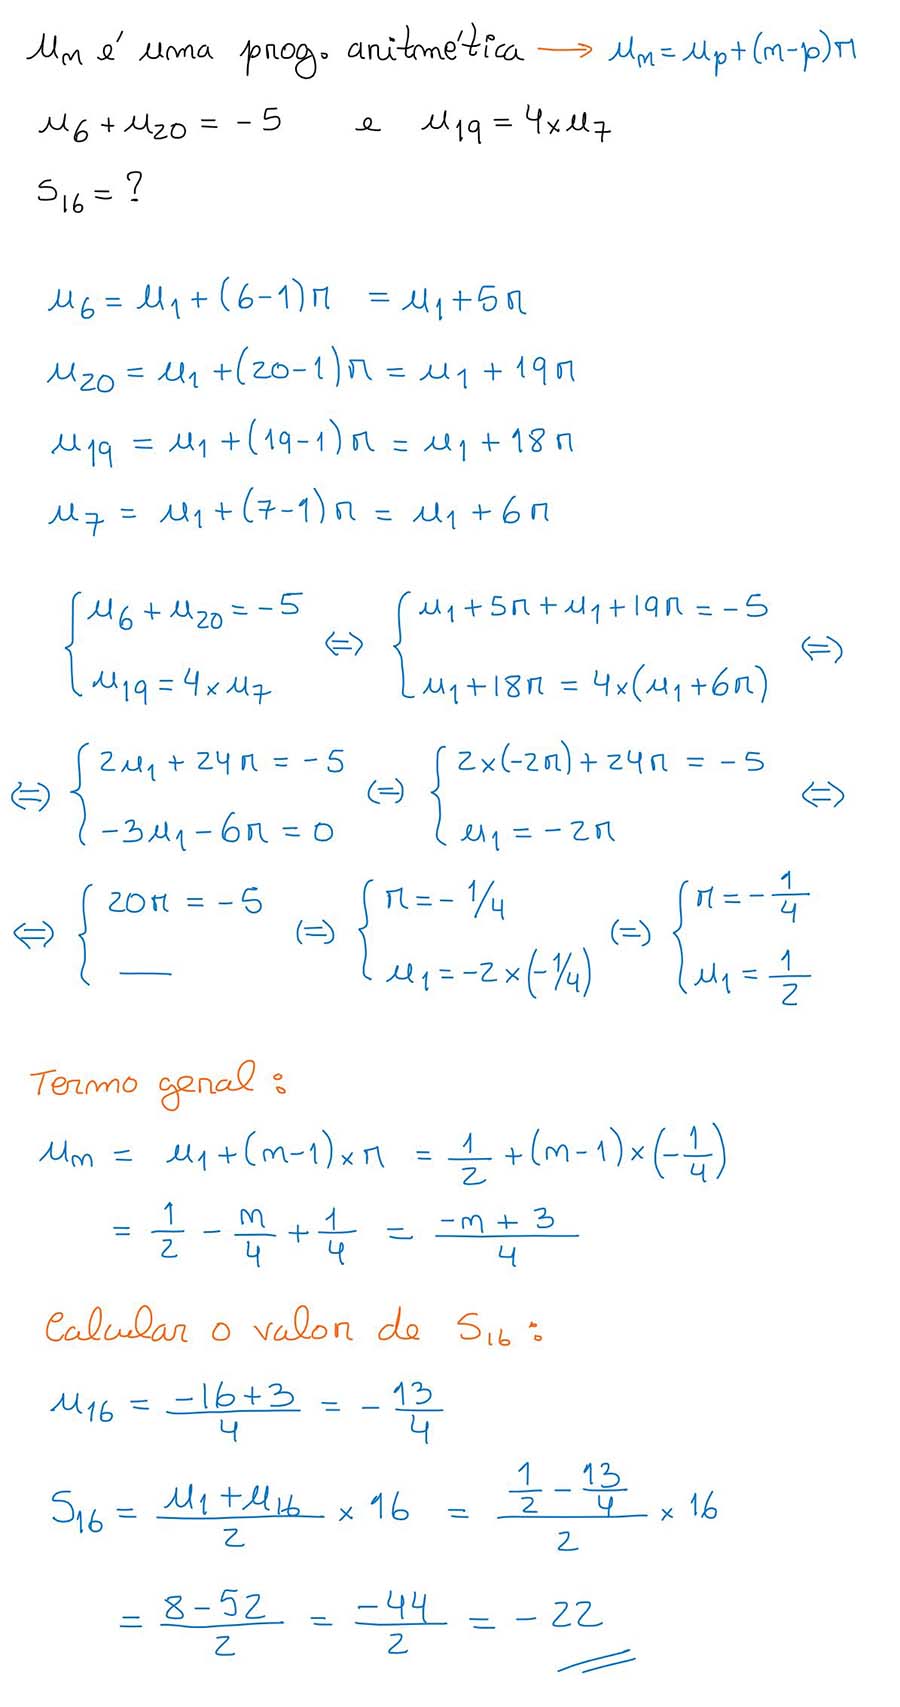 un é uma prog. aritmética → un = up + (n-p)r
u6 + u20 = -5 e u19 = 4×u7
S16 = ?
u6 = u1 + (6-1)r = u1 + 5r
u20 = u1 + (20-1)r = u1 + 19r
u19 = u1 + (19-1)r = u1 + 18r
u7 = u1 + (7-1)r = u1 + 6r
{ u6 + u20 = -5 ⇔ { u1 + 5r + u1 + 19r = -5 ⇔
u19 = 4×u7 u1 + 18r = 4×(u1 + 6r)
⇔ { 2u1 + 24r = -5 (=) { 2×(-2r) + 24r = -5 ⇔
-3u1 - 6r = 0 u1 = -2r
⇔ { 20r = -5 (=) { r = -1/4 (=) { r = -1/4
— u1 = -2×(-1/4) u1 = 1/2
Termo geral:
un = u1 + (n-1)×r = 1/2 + (n-1)×(-1/4)
= 1/2 - n/4 + 1/4 = (-n + 3)/4
Calcular o valor de S16:
u16 = (-16+3)/4 = -13/4
S16 = (u1 + u16)/2 × 16 = (1/2 - 13/4)/2 × 16
= (8 - 52)/2 = -44/2 = -22